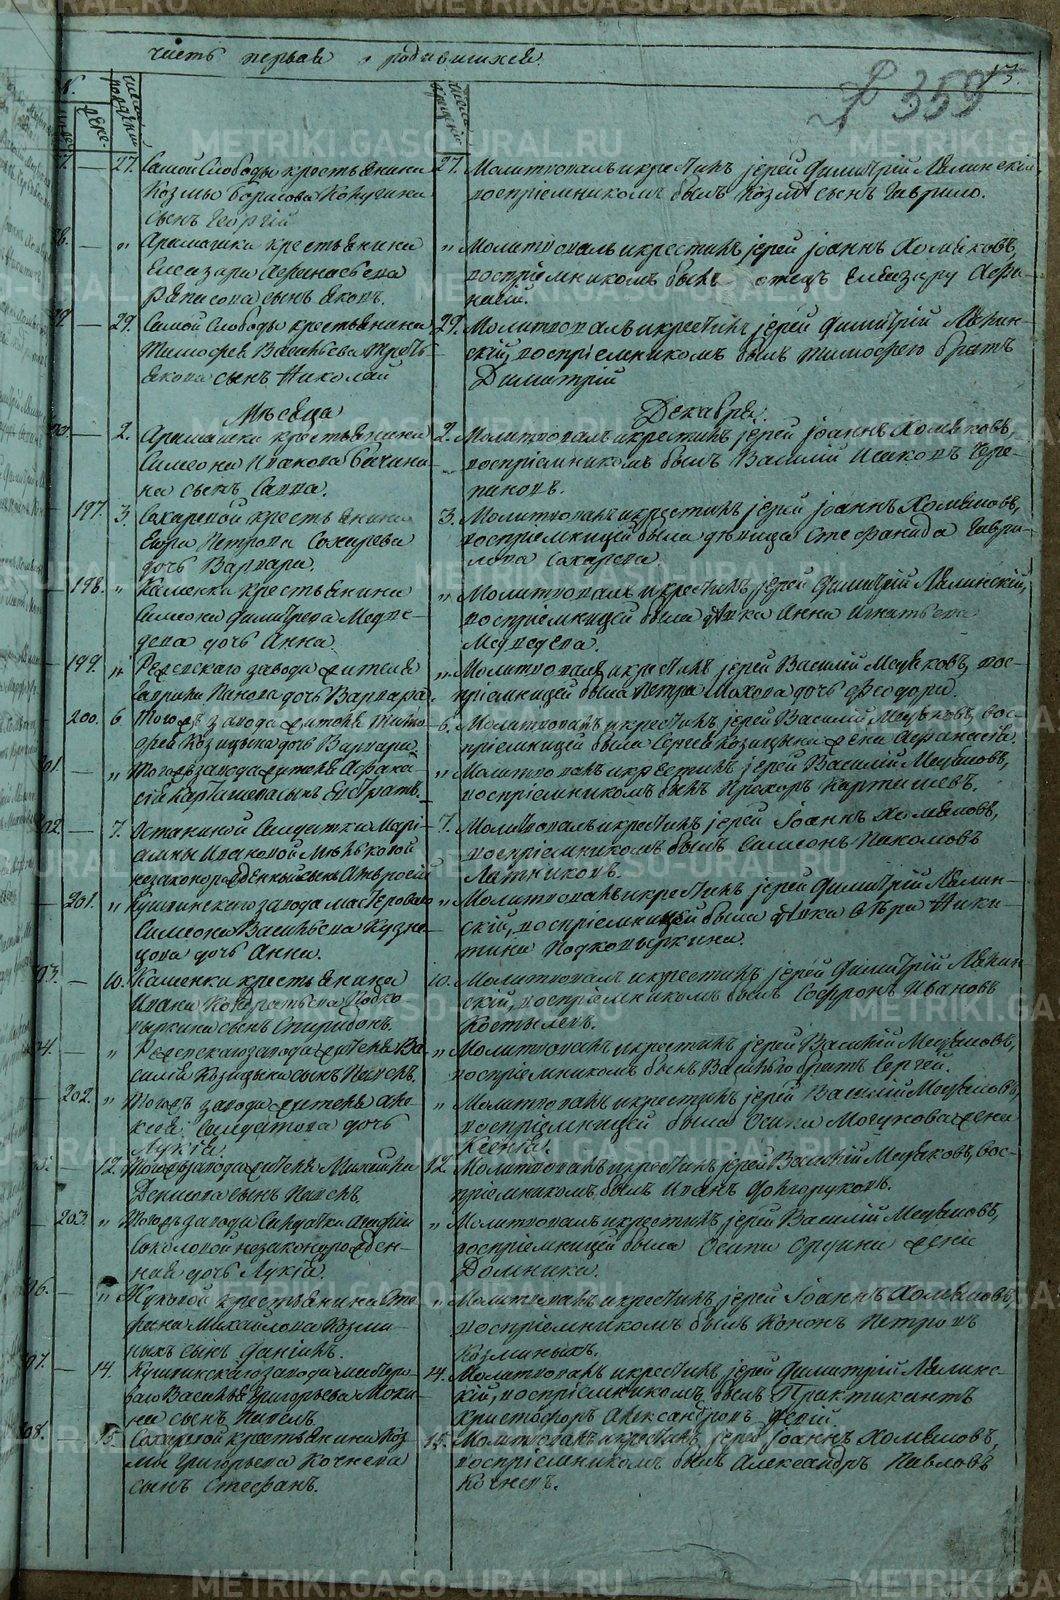 часть первая о родившихся.
13.
359
N.
числа рождений
числа крещений
муже-
жене-
27. Самой Слободы крестьянина
Козмы Борисова
сынъ Георгiй
27. Молитвовалъ и крестилъ iерей Димитрiй Лялинскiй,
воспрiемникомъ былъ Козмы сынъ Гаврило.
— „ Арамашки крестьянина
Елеазара Афанасьева
сынъ Яковъ.
„ Молитвовалъ и крестилъ iерей Iоаннъ Хомяковъ,
воспрiемникомъ былъ отецъ Елеазару Афа-
насiй.
— 29. Самой Слободы крестьянина
Тимофея Васильева
сынъ Николай
29. Молитвовалъ и крестилъ iерей Димитрiй Лялин-
скiй, воспрiемникомъ былъ Тимофею братъ
Димитрiй
Мѣсяца Декабря.
— 2. Арамашки крестьянина
Симеона Иванова Бачини-
на сынъ Савва.
2. Молитвовалъ и крестилъ iерей Iоаннъ Хомяковъ,
воспрiемникомъ былъ Василiй Исаковъ Чере-
пановъ.
— 197. 3. Сохаревой крестьянина
Егора Петрова Сохарева
дочь Варвара.
3. Молитвовалъ и крестилъ iерей Iоаннъ Хомяковъ,
воспрiемницей была дѣвица Стефанида Гаври-
лова Сохарева.
— 198. „ Каменки крестьянина
Симеона Димитрева Медве-
дева дочь Анна.
„ Молитвовалъ и крестилъ iерей Димитрiй Лялинскiй,
воспрiемницей была дѣвка Анна Игнатьева
Медведева.
— 199. „ Режевскаго завода жителя
Гаврилы Панова дочь Варвара.
„ Молитвовалъ и крестилъ iерей Василiй Медяковъ, вос-
прiемницей была Петра Мохова дочь Феодора.
— 200. 6. Тогожъ завода жителя
Козицына дочь Варвара.
6. Молитвовалъ и крестилъ iерей Василiй Медяковъ, вос-
прiемницей была Сергея Козицына жена Афанасiя.
201. — „ Тогожъ завода жителя Афана-
сiя Карташева сынъ Евстратъ.
„ Молитвовалъ и крестилъ iерей Василiй Медяковъ,
воспрiемникомъ былъ Прохоръ Карташевъ.
202. — 7. Останиной Салдатки Марi-
амны Ивановой
незаконорожденный сынъ Амвросiй
7. Молитвовалъ и крестилъ iерей Iоаннъ Хомяковъ,
воспрiемникомъ былъ Симеонъ Пахомовъ
Латниковъ.
— 201. „ Кушвинскаго завода мастероваго
Симеона Васильева Кузне-
цова дочь Анна.
„ Молитвовалъ и крестилъ iерей Димитрiй Лялин-
скiй, воспрiемницей была дѣвка Вѣра Ники-
тина Подковыркина.
203. — 10. Каменки крестьянина
Ивана Кондратьева Подко-
выркина сынъ Спиридонъ.
10. Молитвовалъ и крестилъ iерей Димитрiй Лялин-
скiй, воспрiемникомъ былъ Софронъ Ивановъ
Костылевъ.
204. — „ Режевскаго завода жителя Ва-
силiя Козицына сынъ Павелъ.
„ Молитвовалъ и крестилъ iерей Василiй Медяковъ,
воспрiемникомъ былъ Василью братъ Сергей.
— 202. „ Тогожъ завода жителя Але-
ксея Салдатова дочь
Лукiя.
„ Молитвовалъ и крестилъ iерей Василiй Медяковъ,
воспрiемницей была Осипа жена
Ксенiя.
205. — 12. Тогожъ завода жителя Михаила
сынъ Павелъ.
12. Молитвовалъ и крестилъ iерей Василiй Медяковъ, вос-
прiемникомъ былъ Иванъ Долгоруковъ.
— 203. „ Тогожъ завода Салдатки
Соколовой незаконорожден-
ная дочь Лукiя.
„ Молитвовалъ и крестилъ iерей Василiй Медяковъ,
воспрiемницей была Осипа жена
Домника.
206. — „ Жуковой крестьянина Сте-
фана Михайлова Козми-
ныхъ сынъ Данiилъ.
„ Молитвовалъ и крестилъ iерей Iоаннъ Хомяковъ,
воспрiемникомъ былъ Кононъ Петровъ
Козминыхъ.
207. — 14. Кушвинскаго завода мастеро-
ваго Василья Григорьева Моки-
на сынъ Павелъ.
14. Молитвовалъ и крестилъ iерей Димитрiй Лялинс-
кiй, воспрiемникомъ былъ Практикантъ
Христофоръ Александровъ
208. — 15. Сохаревой крестьянина Коз-
мы Григорьева Кочнева
сынъ Стефанъ.
15. Молитвовалъ и крестилъ iерей Iоаннъ Хомяковъ,
воспрiемникомъ былъ Александръ Павловъ
Кочневъ.
METRIKI.GASO-URAL.RU